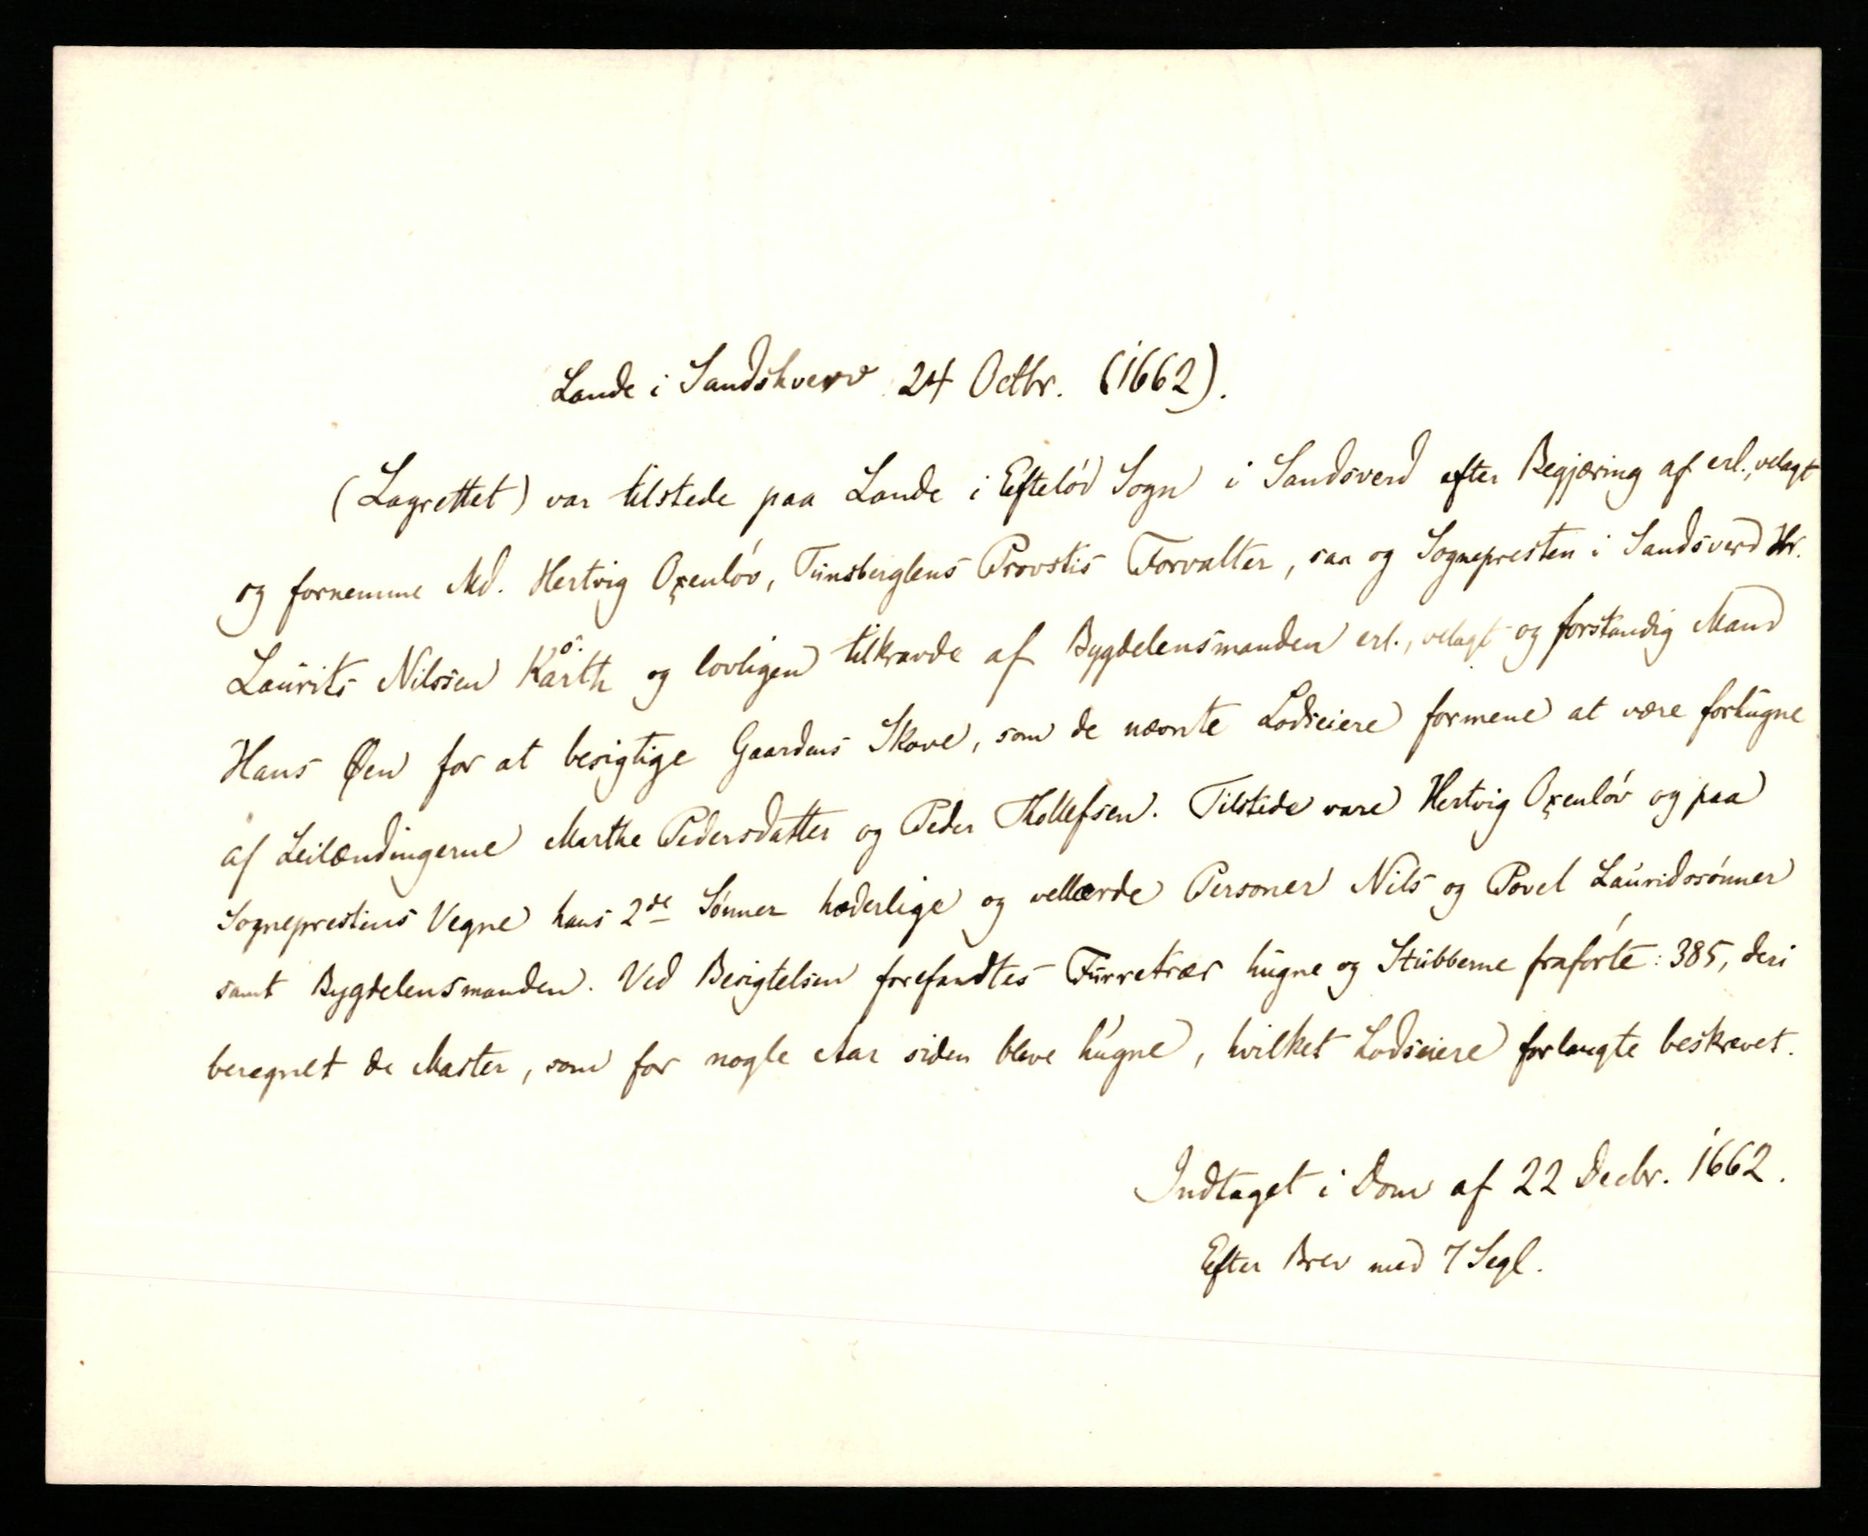 Lande i Sandshverv 24 Octbr. (1662).
(Lagrettet) var tilstede paa Lande i Efteløv Sogn i Sandsverd efter Begjæring af erl., velagt
og fornemme Md. Hertvig Oxenløv, Tunsberglens Provstis Forvalter, saa og Sognepresten i Sandsverd Hr.
Laurits Nilssen Karth og lovligen tilkravde af Bygdelensmanden erl., velagt og forstandig Mand
Hans Øen for at besigtige Gaardens Skove, som de nævnte Lodseiere formene at være forhugne
af Leilændingerne Marthe Pedersdatter og Peder Thollefsen. Tilstede vare Hertvig Oxenløv og paa
Sogneprestens Vegne hans 2de Sønner hæderlige og vellærde Personer Nils og Povel Lauridssønner
samt Bygdelensmanden. Ved Besigtelsen forefandtes Furretræer hugne og Stubberne fraførte: 385, deri
beregnet de Master, som for nogle Aar siden bleve hugne, hvilket Lodseiere forlangte beskrevet.
Indtaget i Dom af 22 Decbr. 1662.
Efter Brev med 7 Segl.